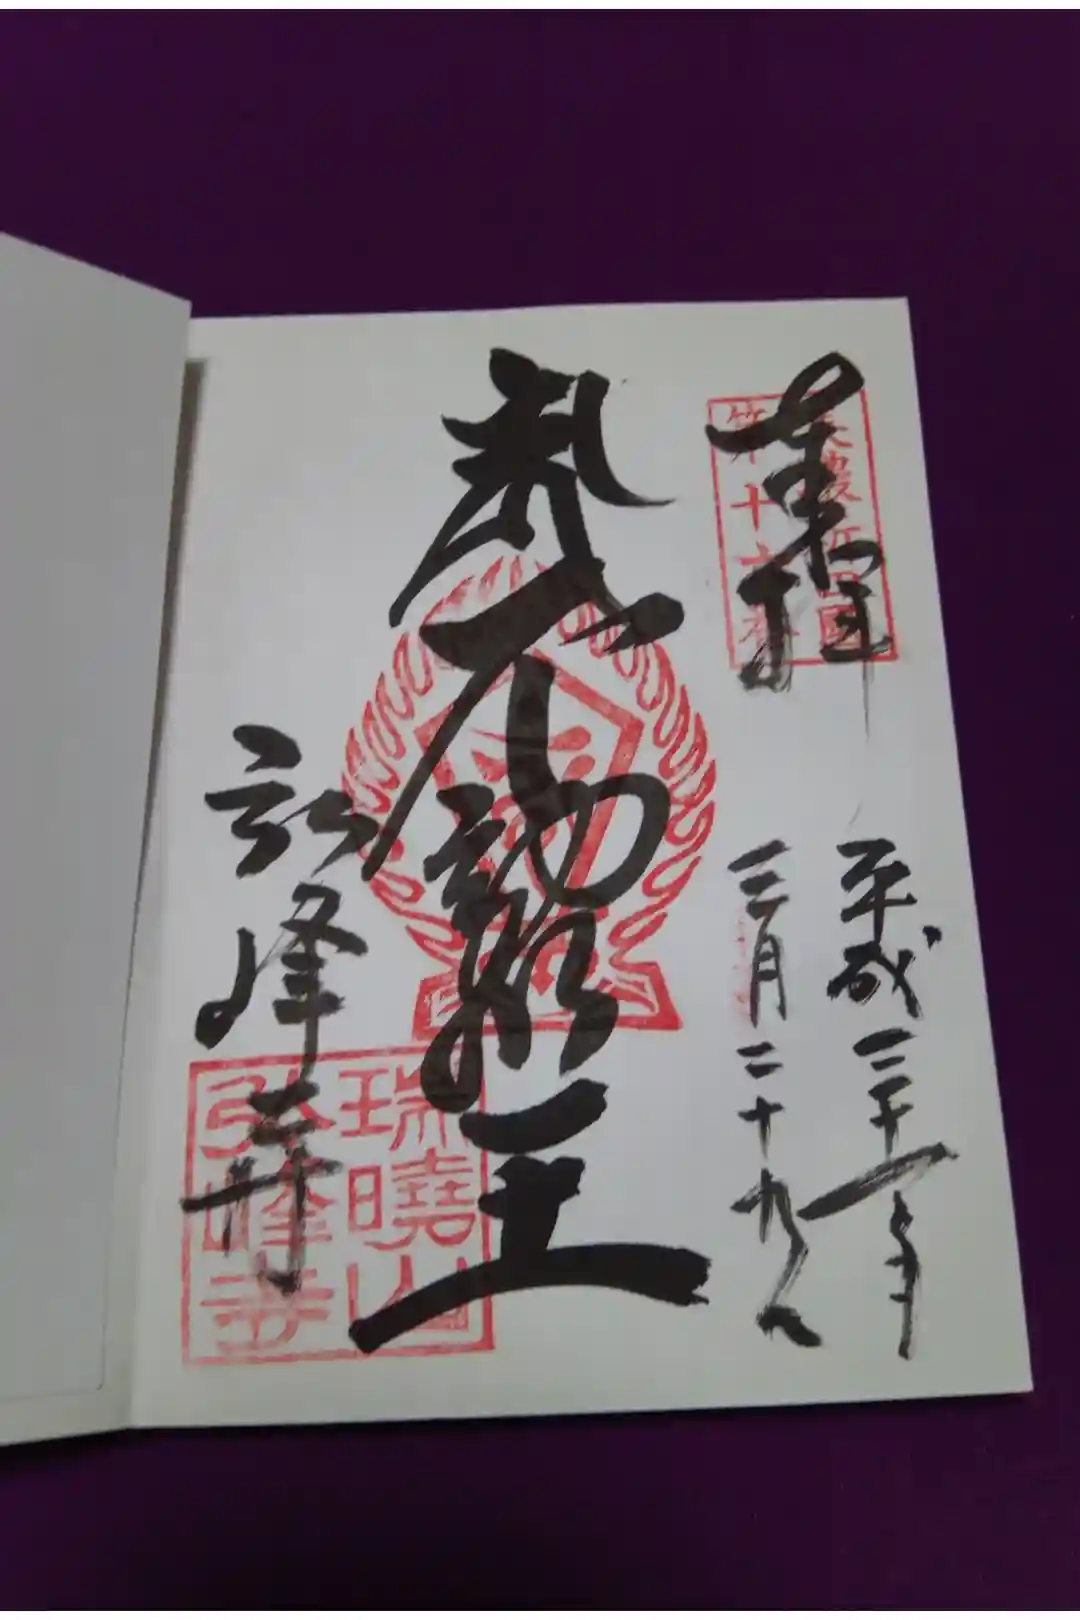 奉拝
美濃新四國
第十六番
平成三十一年
三月二十九日
不動明王
弘峰寺
瑞曉山
弘峰寺